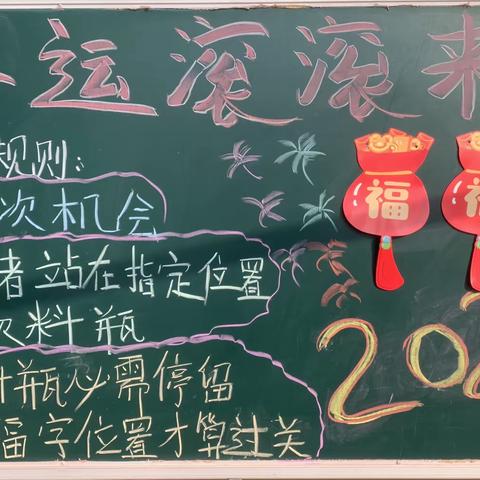 运滚滚来
规则:
次机会
者站在指定位置
料瓶
瓶必需停留
福字位置才算过关
福
福
202